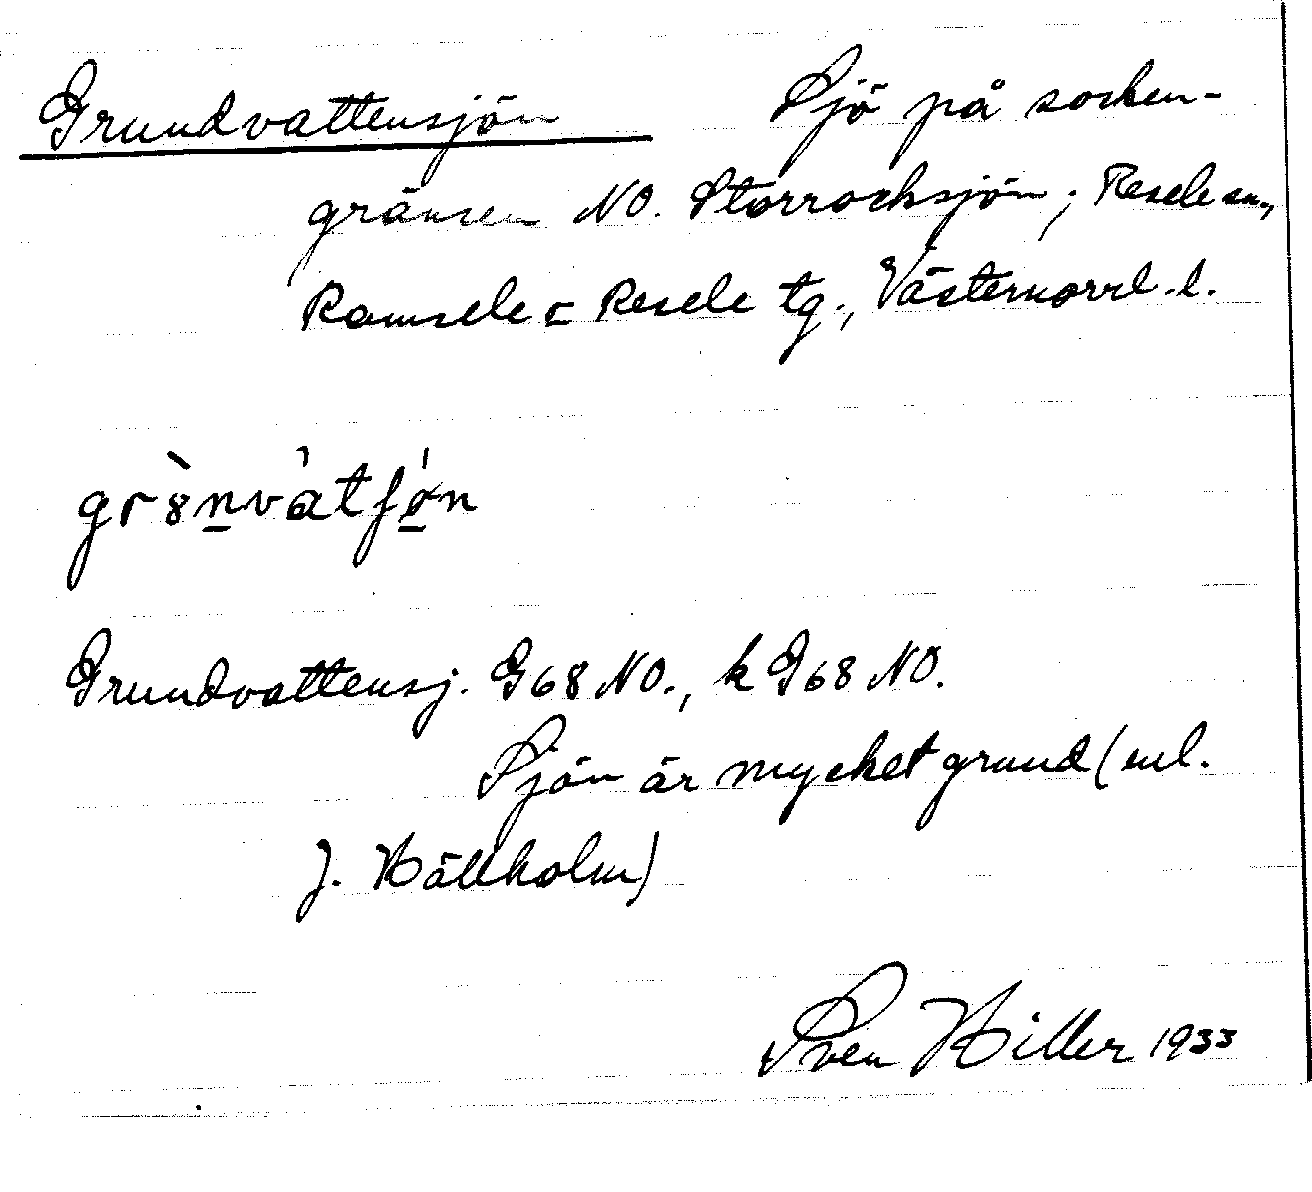 Grundvattensjön Sjö på socken-
gränsen NO. Storrocksjön; Resele sn.,
Ramsele o Resele tg., Västernorrl. l.
gr8̀n̲vàtʃø̲n
Grundvattensj. G68 NO., k G68 NO.
Sjön är mycket grund (enl.
J. Hällholm)
Sven Hiller 1933